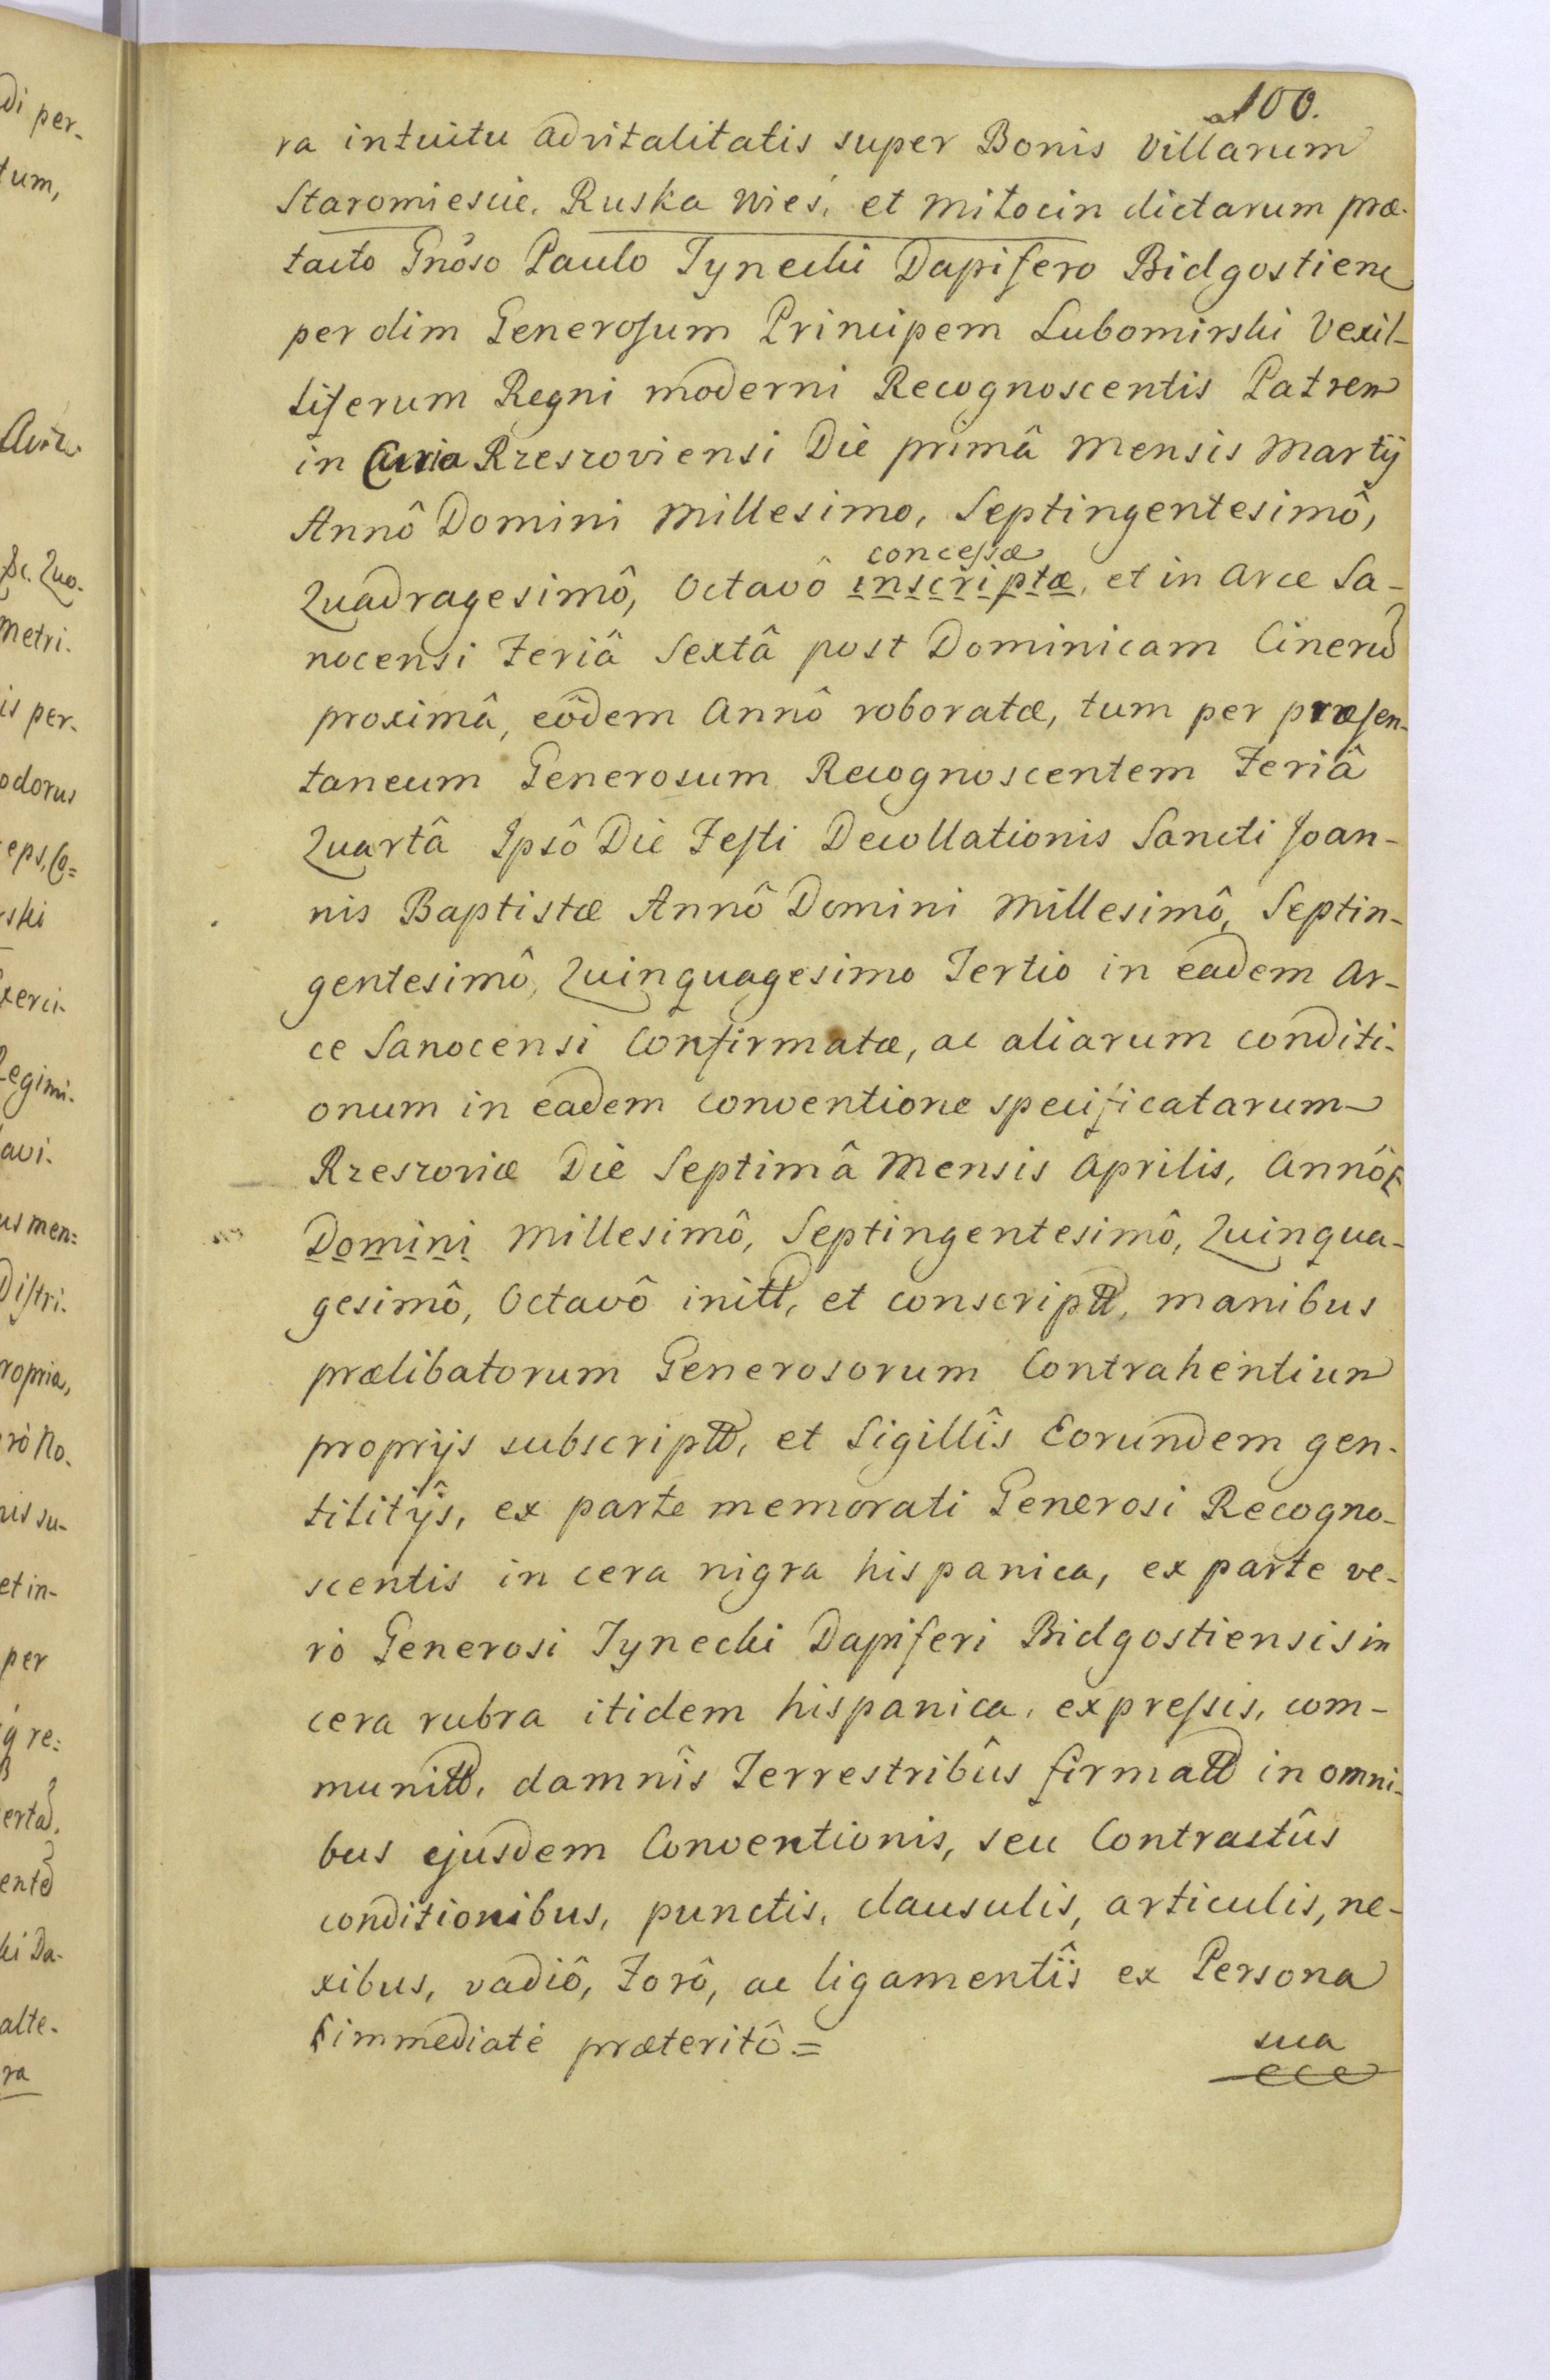 100.
ra intuitu advitalitatis super Bonis Villarum
Staromiescie, Ruska Wieś, et Mitocin dictarum præ-
tacto Gnöso Paulo Tynecki Dapifero Bidgostien
per olim Generosum Principem Lubomirski Vexil-
liferum Regni moderni Recognoscentis Patrem
in Curia Rzeszoviensi Die primâ Mensis Martij
Annô Domini Millesimo, Septingentesimô,
concessæ
Quadragesimô, Octavô inscriptæ, et in Arce Sa-
nocensi Feriâ Sextâ post Dominicam Cineru
proximâ, eôdem Annô roboratæ, tum per præsen-
taneum Generosum Recognoscentem Feriâ
Quartâ Ipsô Die Festi Decollationis Sancti Joan-
nis Baptistæ Annô Domini Millesimô, Septin-
gentesimô, Quinquagesimo Tertio in eadem Ar-
ce Sanocensi Confirmatæ, ac aliarum conditi-
onum in eadem conventione specificatarum
Rzeszoviæ Die Septimâ Mensis Aprilis, Annô
Domini Millesimô, Septingentesimô, Quinqua-
gesimô, Octavô initt, et conscriptt, manibus
prælibatorum Generosorum Contrahentium
proprijs subscriptt, et Sigillîs Eorundem gen-
tilitijs, ex parte memorati Generosi Recogno-
scentis in cera nigra hispanica, ex parte ve-
rò Generosi Tynecki Dapiferi Bidgostiensis in
cera rubra itidem hispanica, expressis, com-
munitt, damnîs Terrestribûs firmatt in omni-
bus ejusdem Conventionis, seu Contractûs
conditionibus, punctis, clausulis, articulis, ne-
xibus, vadiô, forô, ac ligamentîs ex Persona
immediatè præteritô =
sua